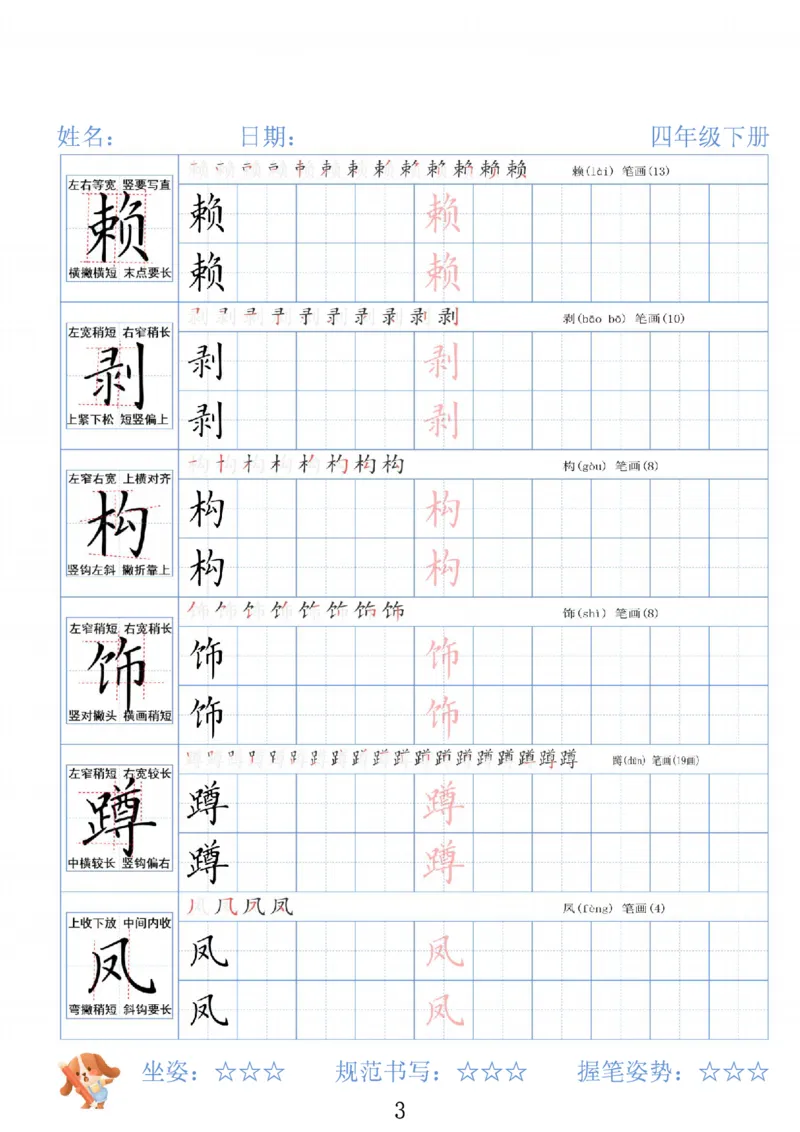 姓名： 日期： 四年级下册
赖(lài) 笔画(13)
左右等宽 竖要写直
赖
横撇横短 末点要长
赖 赖
赖 赖
剥(bāo bō) 笔画(10)
左宽稍短 右窄稍长
剥
上紧下松 短竖偏上
剥 剥
剥 剥
构(gòu) 笔画(8)
左窄右宽 上横对齐
构
竖钩左斜 撇折靠上
构 构
构 构
饰(shì) 笔画(8)
左窄稍短 右宽稍长
饰
竖对撇头 横画稍短
饰 饰
饰 饰
蹲(dūn) 笔画(19画)
左窄稍短 右宽较长
蹲
中横较长 竖钩偏右
蹲 蹲
蹲 蹲
凤(fèng) 笔画(4)
上收下放 中间内收
凤
弯撇稍短 斜钩要长
凤 凤
凤 凤
坐姿：☆☆☆ 规范书写：☆☆☆ 握笔姿势：☆☆☆
3